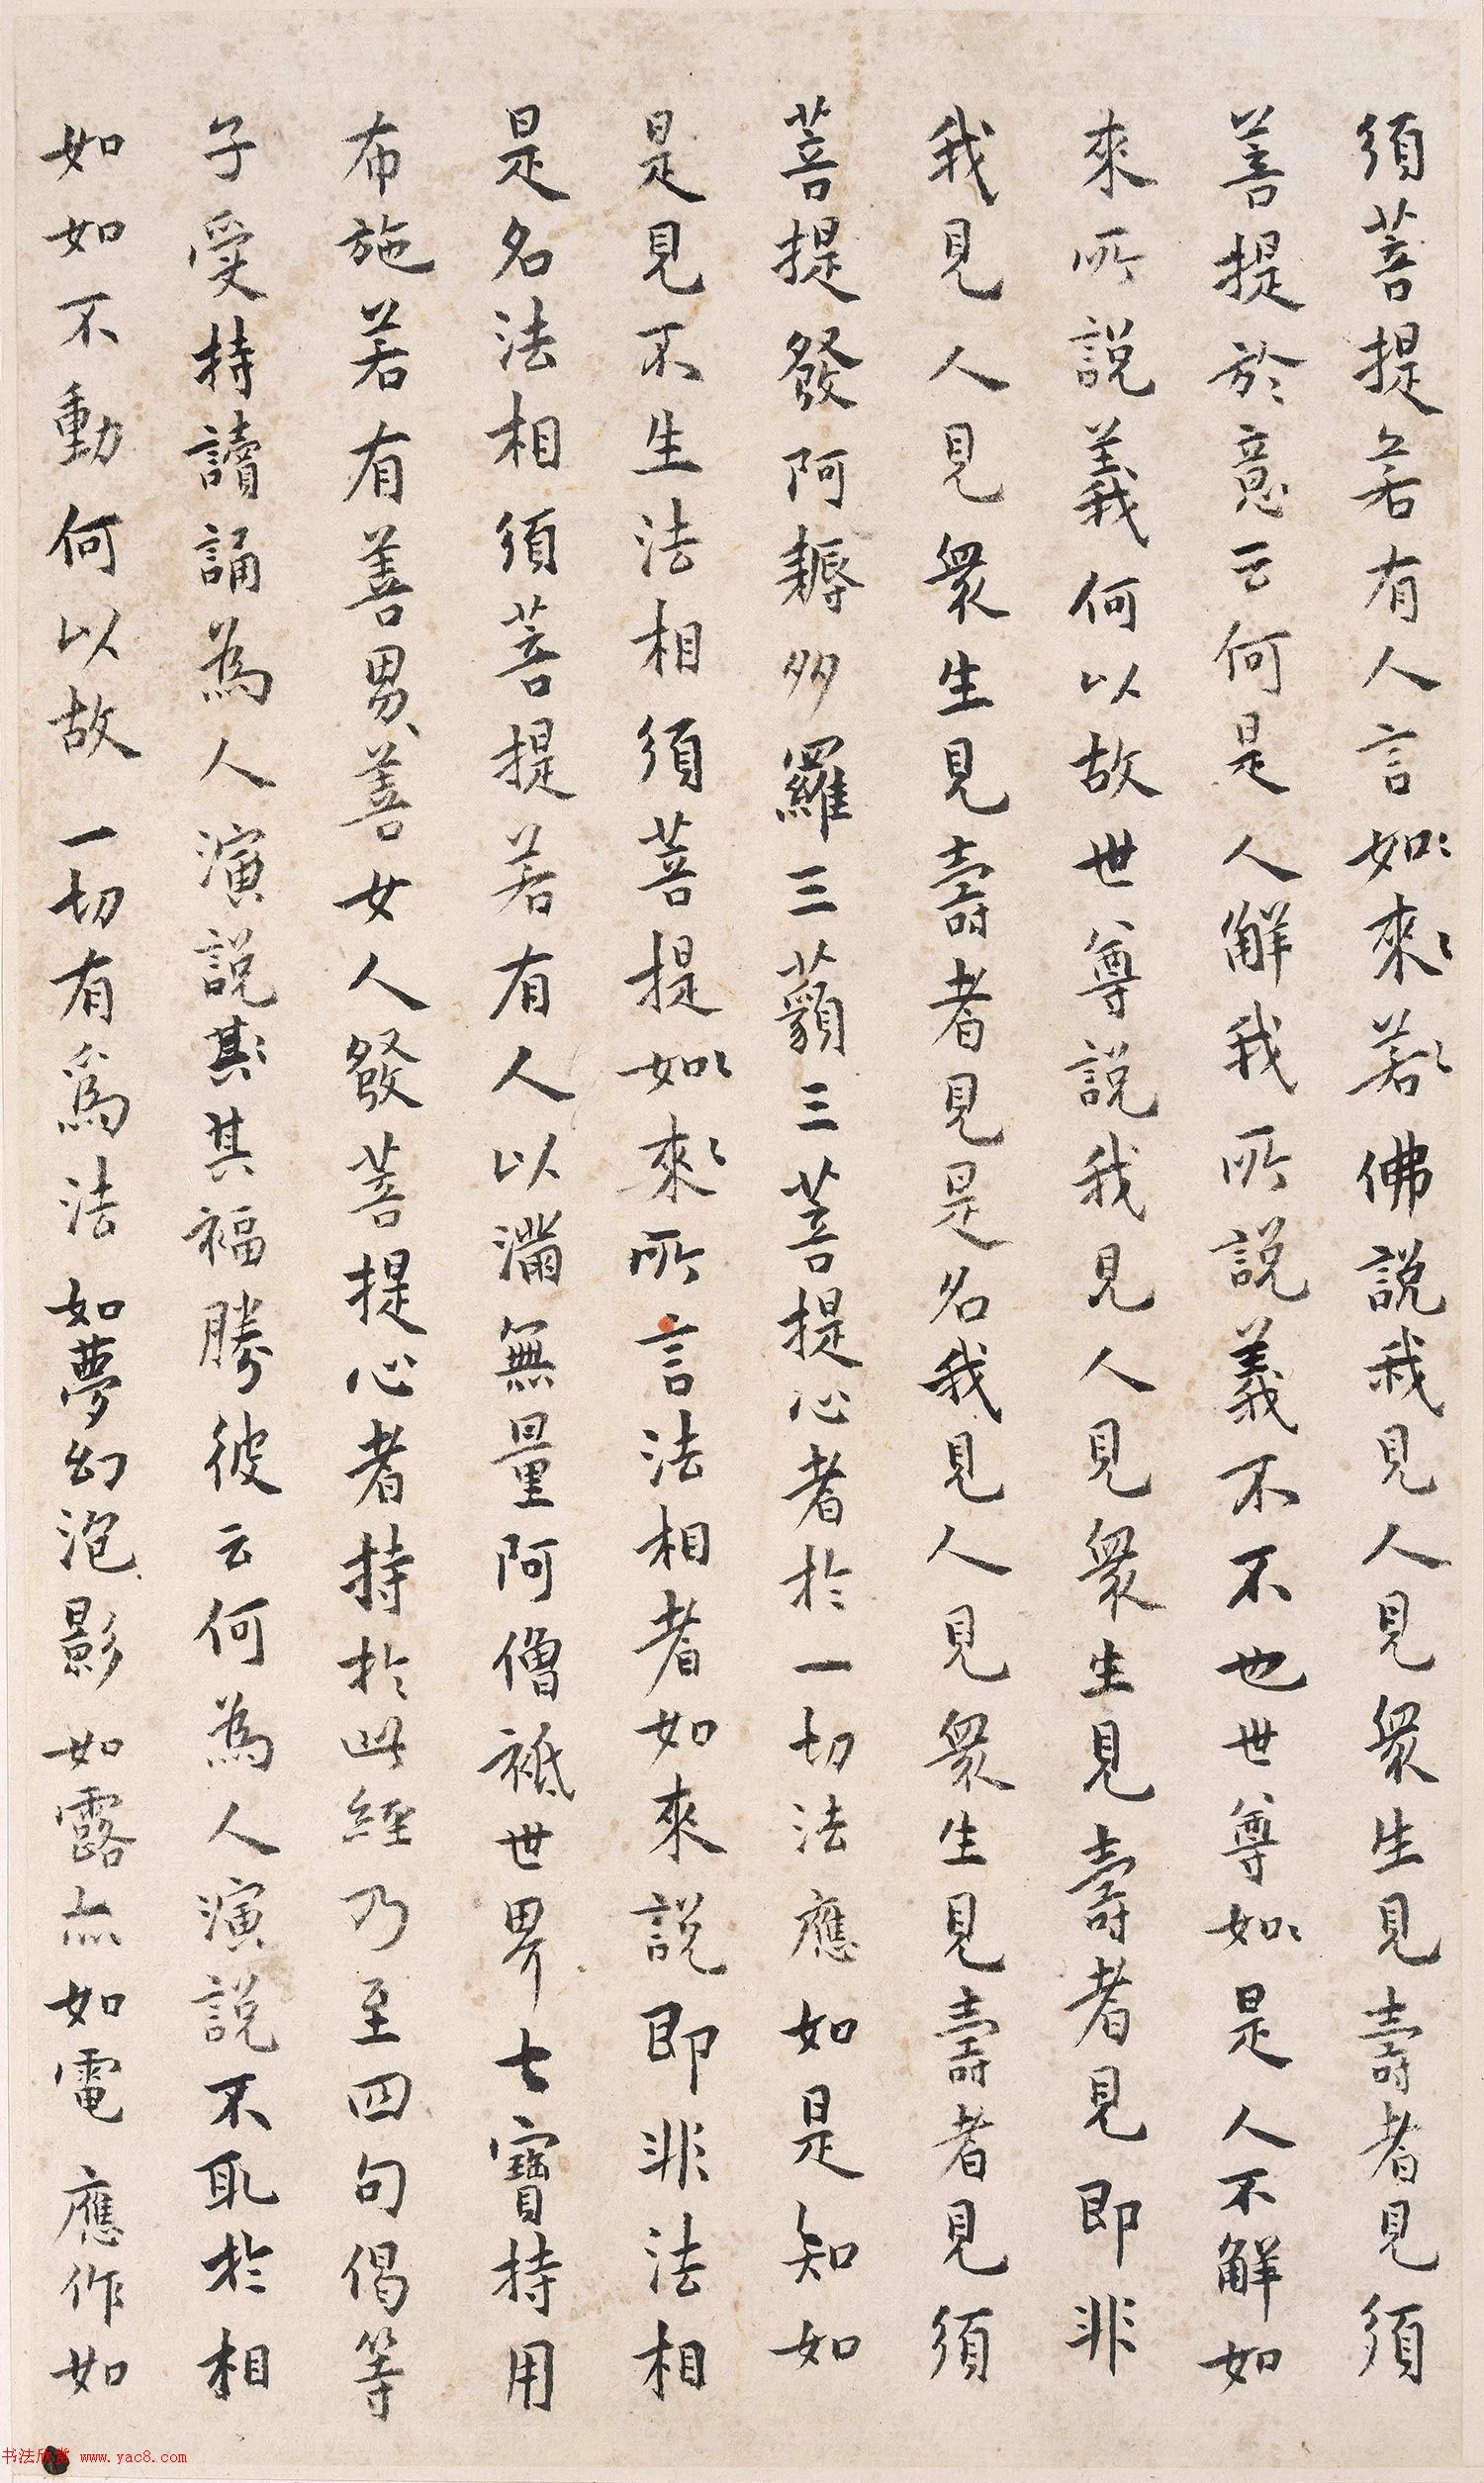 須菩提若有人言如來若佛說我見人見衆生見壽者見須
菩提於意云何是人解我所說義不不也世尊如是人不解如
來所說義何以故世尊說我見人見衆生見壽者見即非
我見人見衆生見壽者見是名我見人見衆生見壽者見須
菩提發阿耨多羅三藐三菩提心者於一切法應如是知如
是見不生法相須菩提如來所言法相者如來說即非法相
是名法相須菩提若有人以滿無量阿僧祇世界七寶持用
布施若有善男善女人發菩提心者持於此經乃至四句偈等
子受持讀誦為人演說其其福勝彼云何為人演說不取於相
如如不動何以故 一切有為法 如夢幻泡影 如露亦如電 應作如
书法欣赏 www.yac8.com